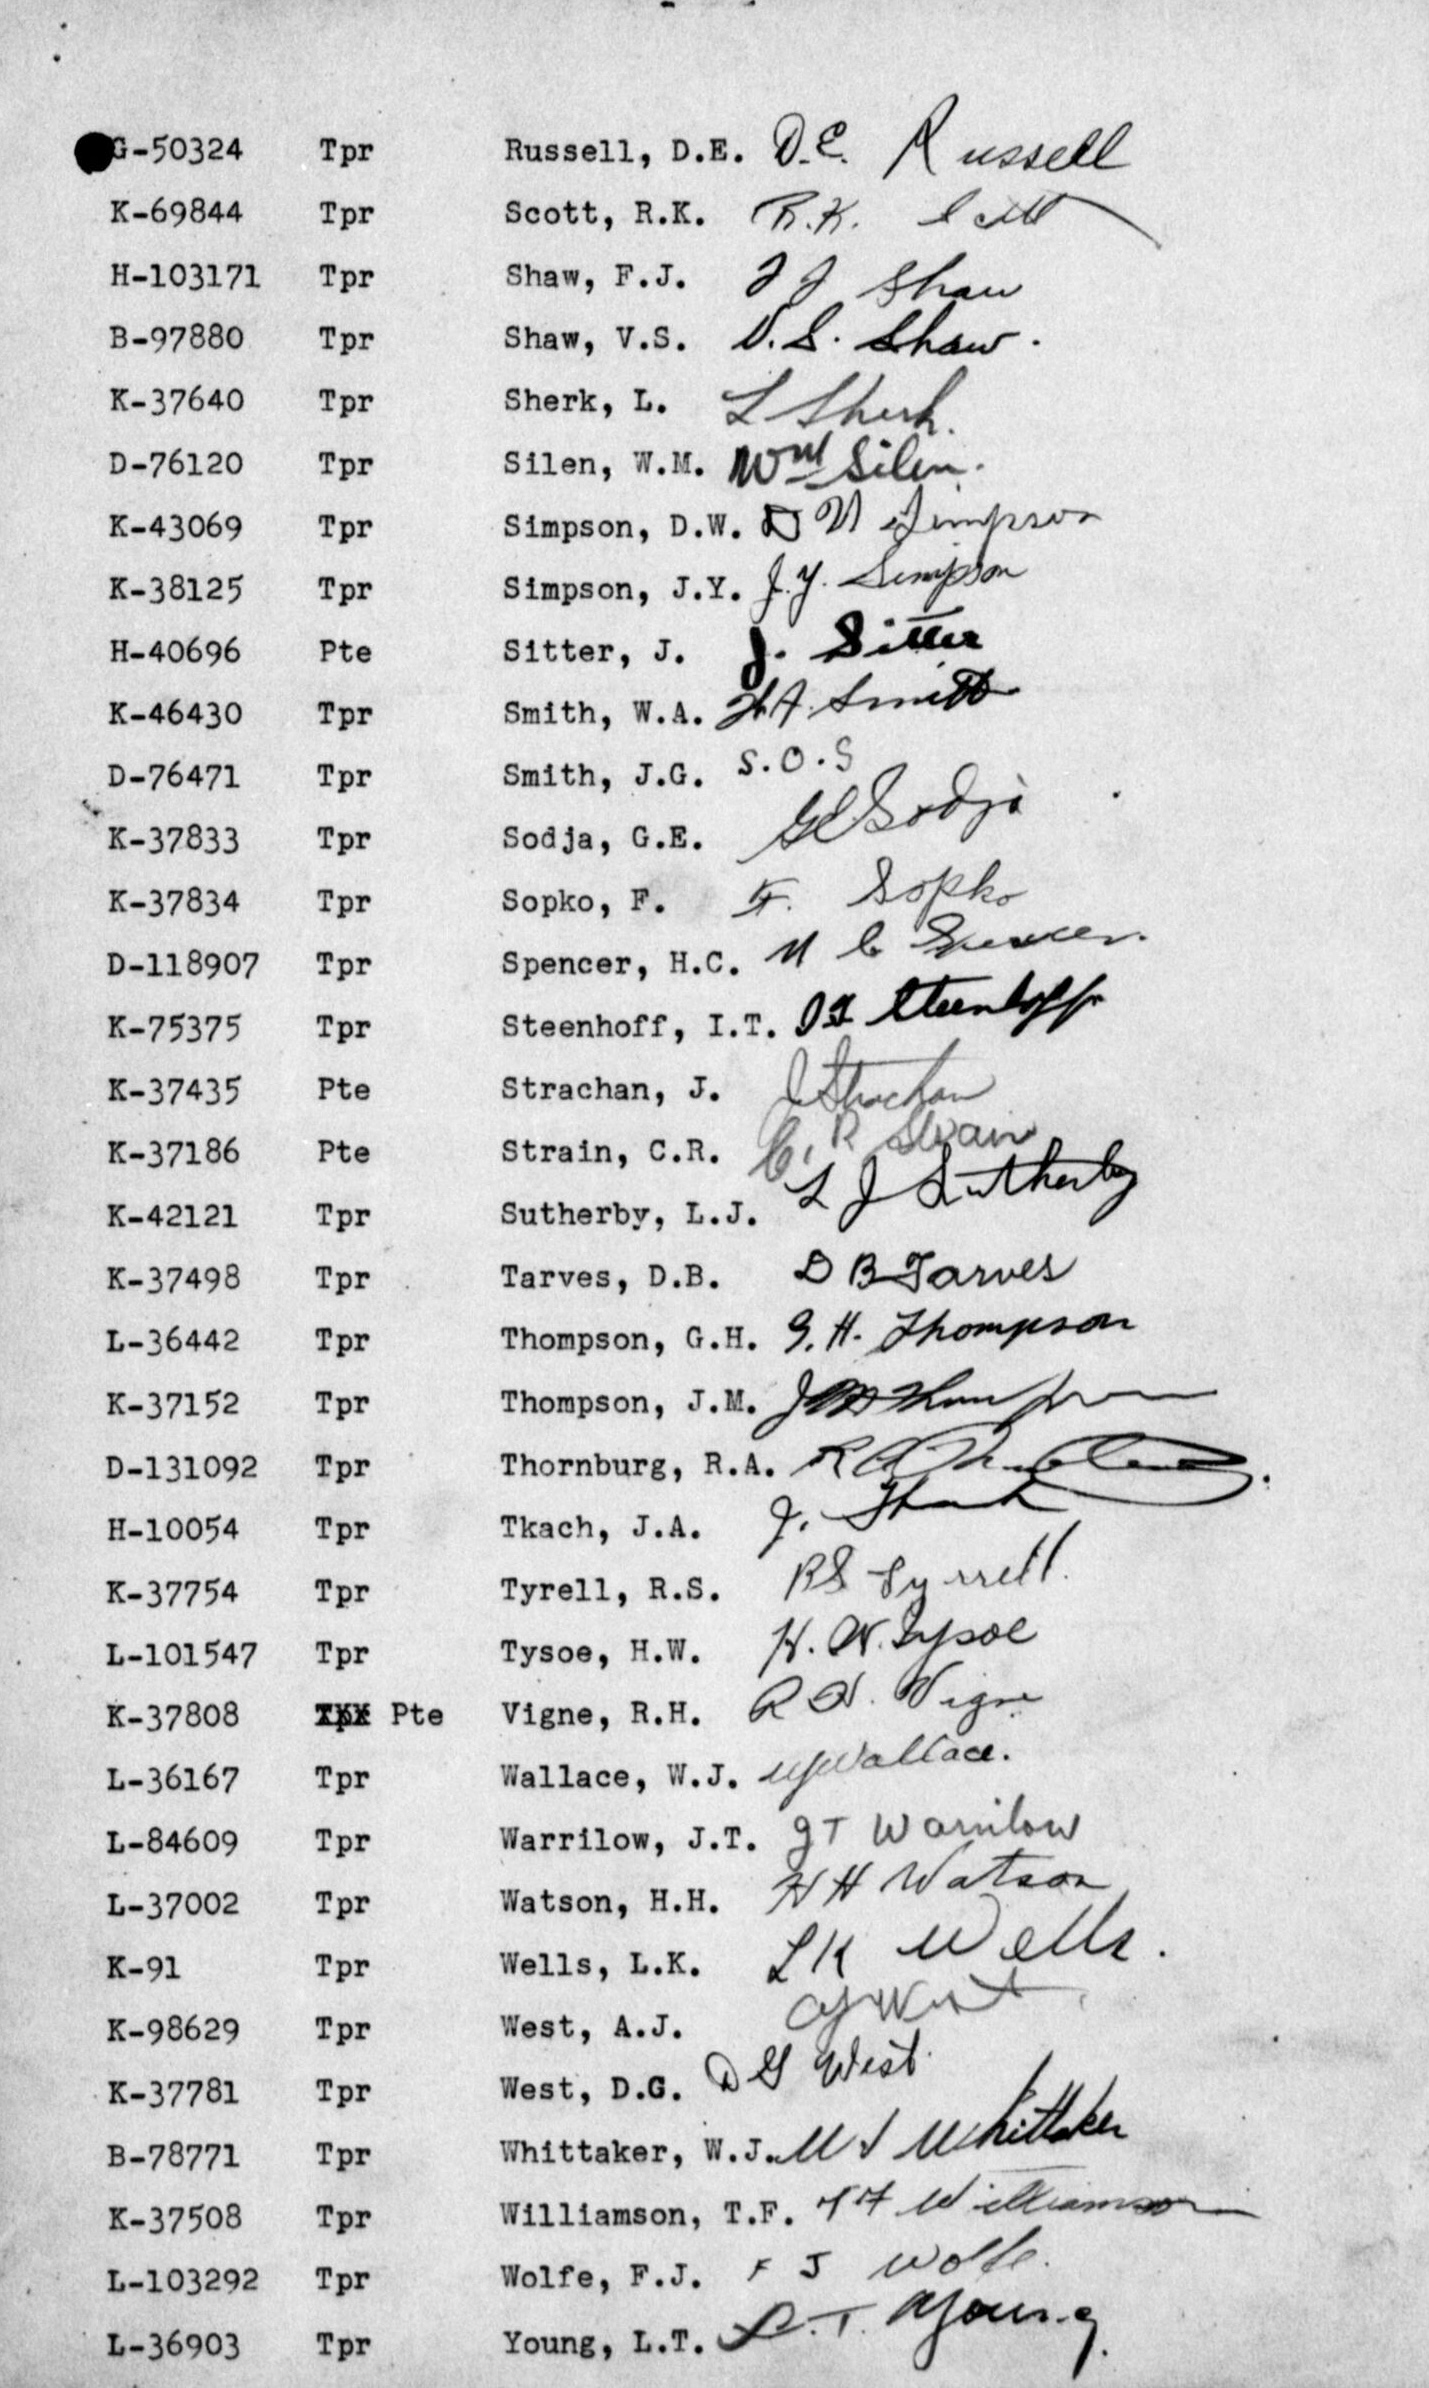 G-50324 Tpr Russell, D.E. D.E. Russell
K-69844 Tpr Scott, R.K. R.K. Scott
H-103171 Tpr Shaw, F.J. F J Shaw
B-97880 Tpr Shaw, V.S. V.S. Shaw.
K-37640 Tpr Sherk, L. L Sherk.
D-76120 Tpr Silen, W.M. Wm Silen.
K-43069 Tpr Simpson, D.W. D W Simpson
K-38125 Tpr Simpson, J.Y. J.Y. Simpson
H-40696 Pte Sitter, J. J. Sitter
K-46430 Tpr Smith, W.A. W.A. Smith
D-76471 Tpr Smith, J.G. S.O.S
K-37833 Tpr Sodja, G.E. GE Sodja
K-37834 Tpr Sopko, F. F. Sopko
D-118907 Tpr Spencer, H.C. H C Spencer.
K-75375 Tpr Steenhoff, I.T. I T Steenhoff
K-37435 Pte Strachan, J. J Strachan
K-37186 Pte Strain, C.R. C. R Strain
K-42121 Tpr Sutherby, L.J. L J Sutherby
K-37498 Tpr Tarves, D.B. D B Tarves
L-36442 Tpr Thompson, G.H. G.H. Thompson
K-37152 Tpr Thompson, J.M. J M Thompson
D-131092 Tpr Thornburg, R.A. R A Thornburg.
H-10054 Tpr Tkach, J.A. J. Tkach
K-37754 Tpr Tyrell, R.S. RS Tyrrell.
L-101547 Tpr Tysoe, H.W. H.W. Tysoe
K-37808 Pte Vigne, R.H. R H. Vigne
L-36167 Tpr Wallace, W.J. WJ Wallace.
L-84609 Tpr Warrilow, J.T. JT Warrilow
L-37002 Tpr Watson, H.H. H H Watson
K-91 Tpr Wells, L.K. L K Wells.
K-98629 Tpr West, A.J. AJ West
K-37781 Tpr West, D.G. D G West.
B-78771 Tpr Whittaker, W.J. W J Whittaker
K-37508 Tpr Williamson, T.F. T F Williamson
L-103292 Tpr Wolfe, F.J. F J Wolfe.
L-36903 Tpr Young, L.T. L.T. Young.